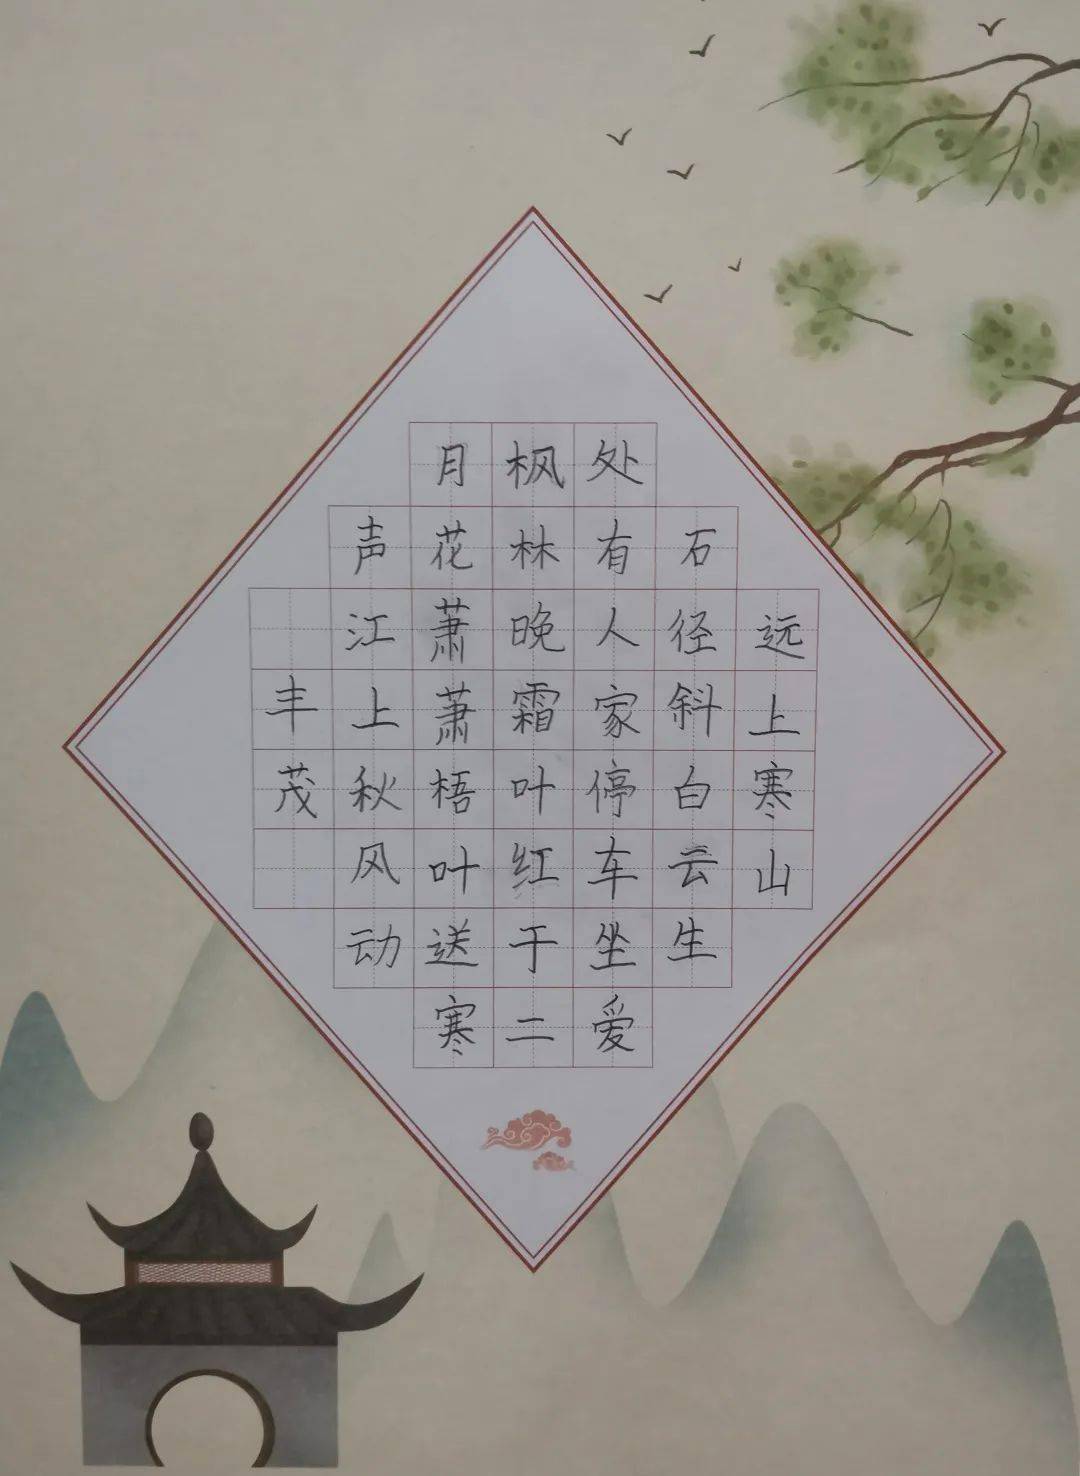 远上寒山
石径斜白云生
处有人家停车坐爱
枫林晚霜叶红于二
月花萧萧梧叶送寒
声江上秋风动
丰茂